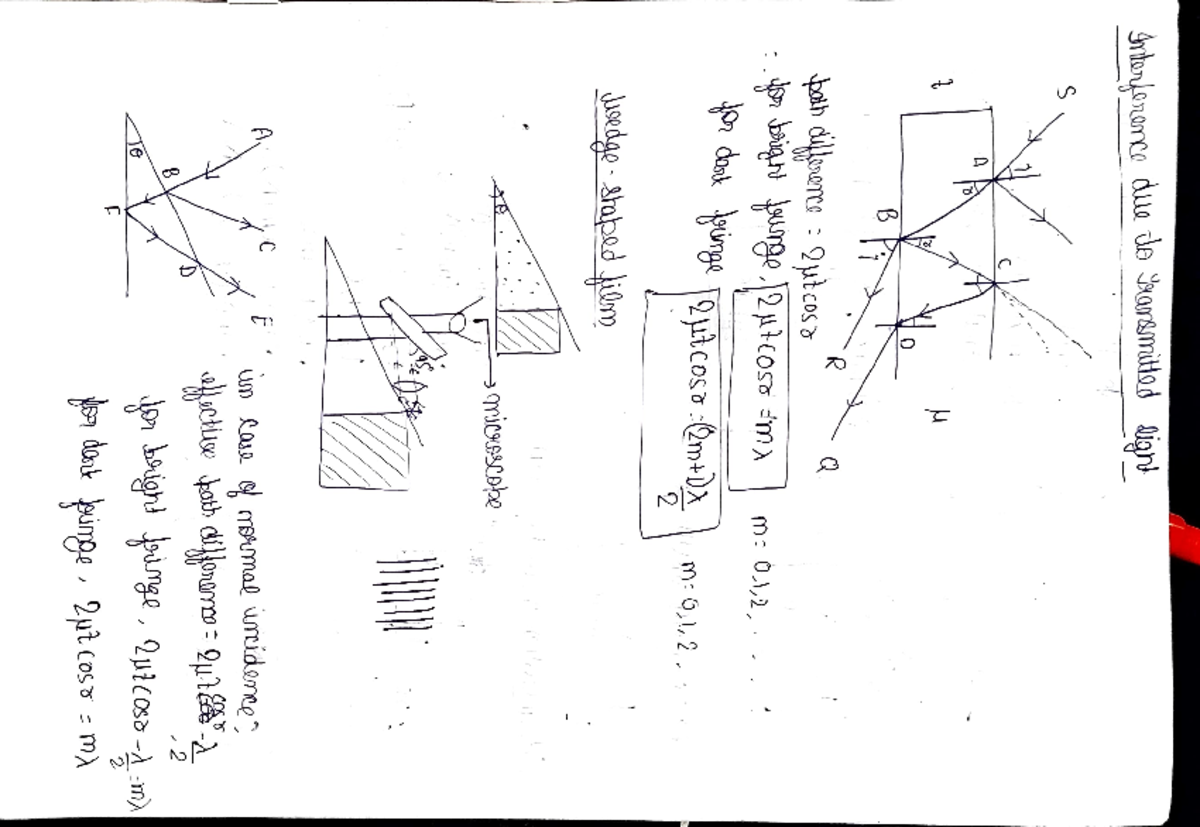 Interference due to Transmitted light
S
t
A
i
r
r
C
B
i
D
R
Q
μ
path difference = 2μt cos r
∴ for bright fringe, 2μt cos r = mλ m = 0,1,2, . . . .
for dark fringe 2μt cos r = (2m+1)λ/2 m = 0,1,2, . .
Wedge-shaped film
θ
→ microscope
45°
A
C
E
B
D
θ
F
in case of normal incidence,
effective path difference = 2μt cos r - λ/2
for bright fringe, 2μt cos r - λ/2 = mλ
for dark fringe, 2μt cos r = mλ